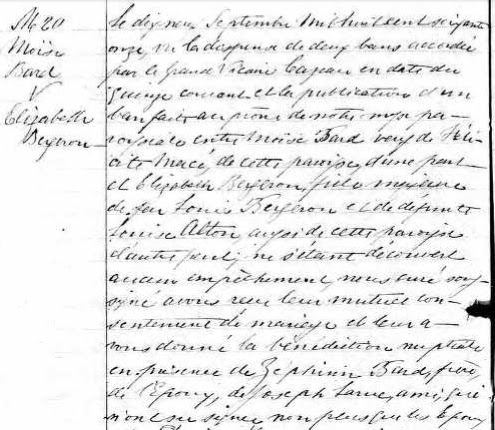 M 20
Moïse
Bard
&
Elizabeth
Bergeron
Le dix neuf Septembre mil huit cent soixante
onze, vu la dispense de deux bans accordée
par le Grand Vicaire Cazeau en date du
quinze courant et la publication d'un
ban faite au prône de notre messe pa-
roissiale entre Moïse Bard veuf de Féli-
cité Macé, de cette paroisse, d'une part
et Elizabeth Bergeron, fille majeure
de feu Louis Bergeron et de défunte
Louise Alton, aussi de cette paroisse
d'autre part; ne s'étant découvert
aucun empêchement, nous curé sous-
signé avons reçu leur mutuel con-
sentement de mariage et leur a-
vons donné la bénédiction nuptiale
en présence de Zéphirin Bard, frère
de l'Epoux, de Joseph Larue, ami, qui
n'ont su signer non plus que les Epoux